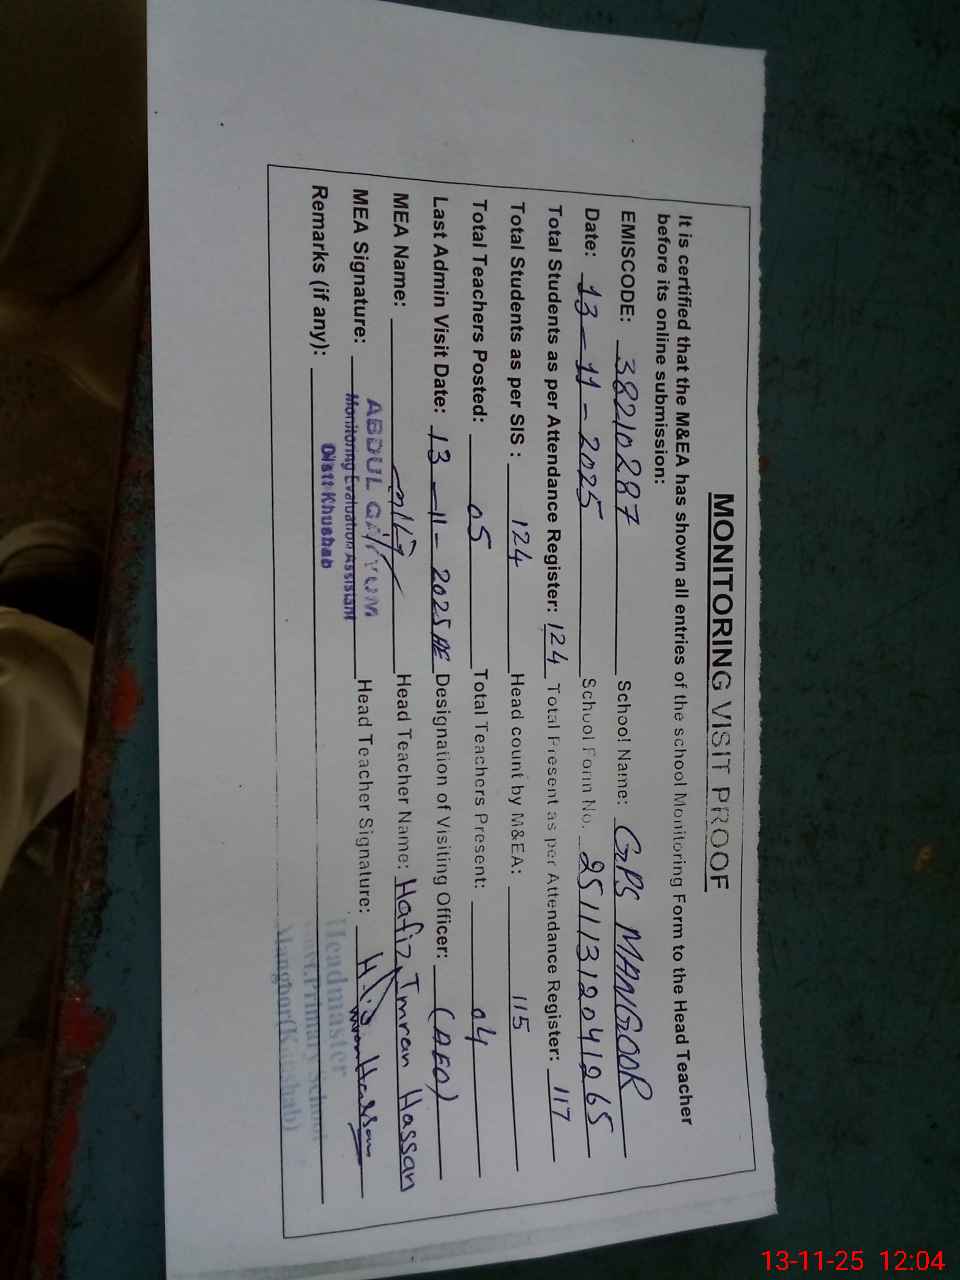 MONITORING VISIT PROOF
It is certified that the M&EA has shown all entries of the school Monitoring Form to the Head Teacher
before its online submission:
EMISCODE: 38210287 School Name: GPS MANGOOR
Date: 13-11-2025 School Form No. 251113120412 65
Total Students as per Attendance Register: 124 Total Present as per Attendance Register: 117
Total Students as per SIS : 124 Head count by M&EA: 115
Total Teachers Posted: 05 Total Teachers Present: 04
Last Admin Visit Date: 13-11-2025 Designation of Visiting Officer: (AEO)
MEA Name: Head Teacher Name: Hafiz Imran Hassan
MEA Signature: ABDUL QAYYUM Head Teacher Signature:
Monitoring Evaluation Assistant
Distt Khushab
Remarks (if any):
Headmaster
Govt. Primary School
Mangoor (Khushab)
13-11-25 12:04